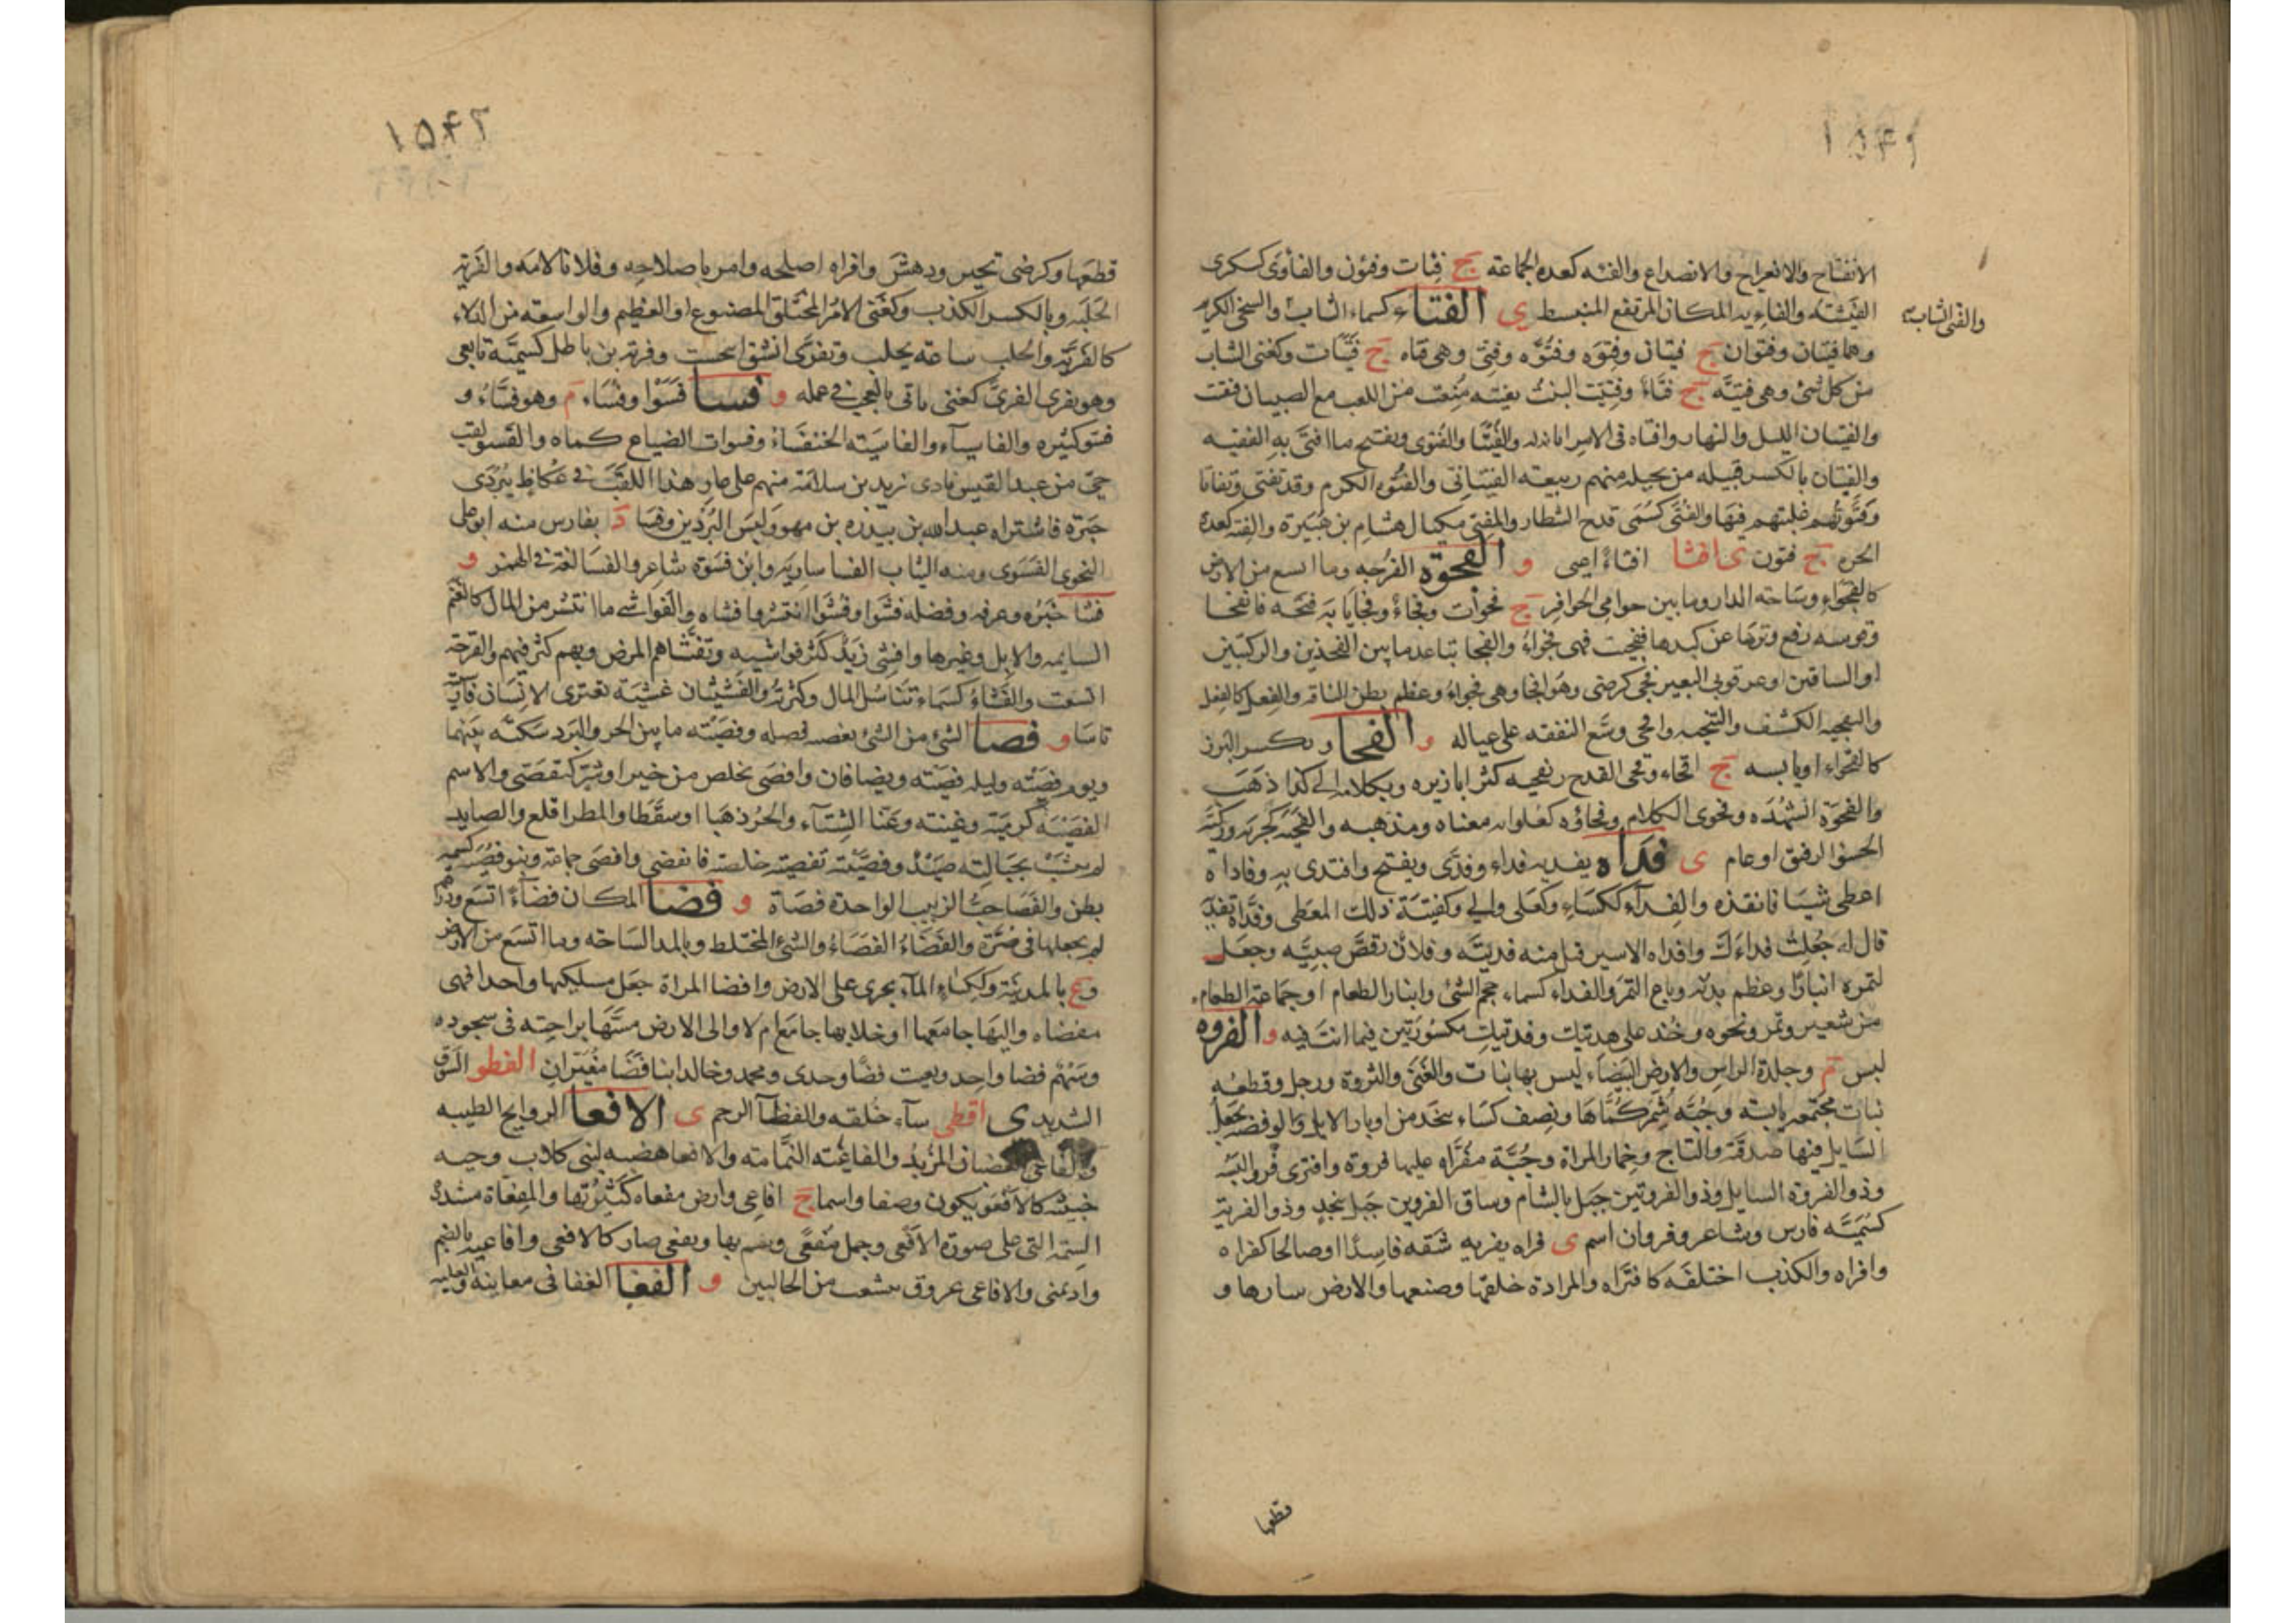 ١٥٤١
الانفتاح والانفراج والانصداع والفئه كعده الجماعه ج فئات وفئون والفأوى كسكرى
الفيشه والفاءيه المكان المرتفع المنبسط ى الفتاء كسماء الشاب والسخى الكريم
والفتى الشاب
وهما فتيان وفتوان ج فتيان وفتوه وفتو وفتى وهى فتاه ج فتيات وكغنى الشاب
من كل شئ وهى فتيه ج فتاء وفتيت البنت تفتيه منعت من اللعب مع الصبيان ففتت
والفتيان الليل والنهار وافتاه فى الامر ابانه له والفتيا والفتوى ويفتح ما افتى به الفقيه
والفتيان بالكسر قبيله من بجيله منهم ربيعه الفتيانى والفتوه الكرم وقد تفتى وتفاتا
وفتوتهم غلبتهم فيها والفتى كسمى قدح الشطار والمفتى مكيال هشام بن هبيرة والفته كعده
الحره ج فتون ى افثا افثاء اعيى و الفجوة الفرجه وما اتسع من الارض
كالفجواء وساحه الدار وما بين حوامى الحوافر ج فجوات وفجاء وفجا بابه فتحه فانفجا
وقوسه رفع وترها عن كبدها ففجيت فهى فجواء والفجا تباعد ما بين الفخذين والركبتين
او الساقين او عرقوبى البعير فجى كرضى وهو افجا وهى فجواء وعظم بطن الناقه والفعل كالفعل
والتفجيه الكشف والتنحيه وافجى وسع النفقه على عياله و الفحا ويكسر البزر
كالفحواء او يابسه ج افحاء وفحى القدر تفحيه كثر ابازيره وبكلامه الى كذا ذهب
والفحوة الشهده وفحوى الكلام وفحاؤه كغلوائه معناه ومذهبه والفحيه كجريه وركيه
الحسو الرقيق او عام ى فداه يفديه فداء وفدى ويفتح وافتدى به وفاداه
اعطى شيئا فانقذه والفداء ككساء وكعلى والى وكفتية ذلك المعطى وفداه تفديه
قال له جعلت فداءك وافداه الاسير قبل منه فديته وفلان رقص صبيه وجعل
لتمره انبارا وعظم بدنه وباع التمر والفداء كسماء حجم الشئ وانبار الطعام او جماعة الطعام
من شعير وتمر ونحوه وخذ على هديتك وفديتك مكسورتين فيما انت فيه و الفروه
لبس م وجلدة الراس والارض البيضاء ليس بها نبات والغنى والثروة ورجل وقطعه
نبات مجتمعه يابسه وجبه شمر كماها ونصف كساء يتخذ من اوبار الابل والوفضه يجعل
السايل فيها صدقته والتاج وخمار المراة وجبة مفراه عليها فروة وافترى فروا لبسه
وذو الفروة السايل وذو الفروتين جبل بالشام وساق الفروين جبل بنجد وذو الفرية
كسمية فارس وشاعر وفروان اسم ى فراه يفريه شقه فاسدا او صالحا كفراه
وافراه والكذب اختلقه كافتراه والمزادة خلقها وصنعها والارض سارها و
قطعها
١٥٤٢
قطعها وكرضى تحير ودهش وافراه اصلحه وامر باصلاحه وفلانا لامه والفرية
الجلبه وبالكسر الكذب وكغنى الامر المختلق المصنوع او العظيم والواسعه من الدلاء
كالفريه والحلب ساعة يحلب وتفرى انشق انبجست وفرية بن ماطل كسمية تابعى
وهو يفرى الفرى كغنى ياتى بالعجب فى عمله و فسا فسوا وفساء م وهو فساء و
فسو كثيره والفاسياء والفاسيته الخنفساء وفسوات الضباع كماه والفسو لقب
حى من عبد القيس نادى زيد بن سلامة منهم على عار هذا اللقب فى عكاظ ببردى
حبرة فاشتراه عبد الله بن بيدره بن مهو ولبس البردين وفسا د بفارس منه ابو على
النحوى الفسوى ومنه الثياب الفساسارية وابن فسوة شاعر والفسا لغة فى الهمز و
فشا خبره وعرفه وفضله فشوا وفشوا انتشر وافشاه والفواشى ما انتشر من المال كالغنم
السايمه والابل وغيرها وافشى زيد كثر فواشيه وتفشاهم المرض وبهم كثر فيهم والقرحة
اتسعت والفشاء كسماء تناسل المال وكثرته والفشيان غشية تعترى الانسان فارسيته
تاسا و فصا الشئ من الشئ يفصيه فصله وفصيته ما بين الحر والبرد سكته بينهما
ويوم فصية وليلة فصية ويضافان وافصى تخلص من خير او شر كتفصى والاسم
الفصية كرمية وغنيته وعنا الشتاء والحر ذهبا او سقطا والمطر اقلع والصايد
لم ينشب بحبالته صيد وفصيته تفصية خلصته فانفصى وافصى جماعة وبنو فصية كسمية
بطن والفصا حب الزبيب الواحدة فصاة و فضا المكان فضاء اتسع ودراهمه
لم يجعلها فى صرة والفضاء الفصاء والشئ المختلط وبالمد الساحه وما اتسع من الارض
وع بالمدينة وككساء الماء يجرى على الارض وافضا المراة جعل مسلكيها واحدا فهى
مفضاه واليها جامعها او خلا بها جامع ام لا والى الارض مسها براحته فى سجوده
وسهم فضا واحد وبقيت فضا وحدى ومحمد وخالد ابنا فضا معبران الفطو السوق
الشديد ى افطى ساء خلقه والفظا الرحم ى الافعا الروايح الطيبه
والفاعى الغضبان المزبد والفاعيته النمامته والافعا هضبه لبنى كلاب وحيه
خبيثه كالافعو يكون وصفا واسما ج افاعى وارض مفعاه كثيرتها والمفعاة مشددة
السمة التى على صورة الافعى وجمل مفعى وسم بها وتفعى صار كالافعى وافاعيه بالضم
واد بمنى والافاعى عروق تتشعب من الحالبين و الفغا الغفا فى معانيه والعلبه